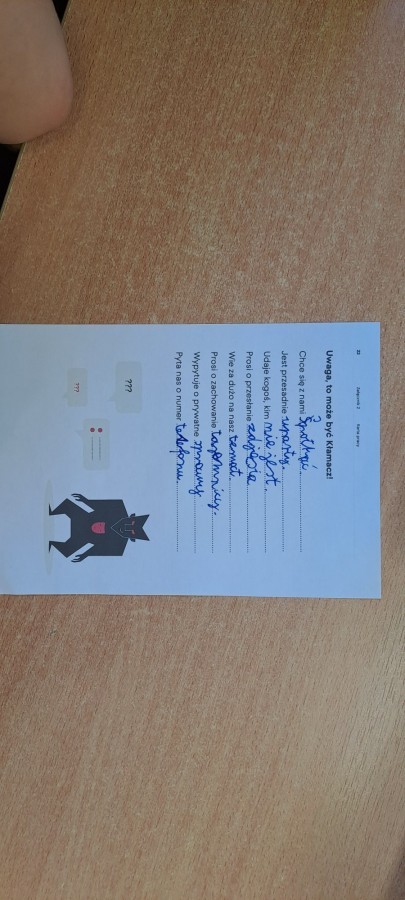 32 Załącznik 2 Karta pracy
Uwaga, to może być Kłamacz!
Chce się z nami Spotkać
Jest przesadnie uparty.
Udaje kogoś, kim nie jest.
Prosi o przesłanie zdjęcia
Wie za dużo na nasz temat.
Prosi o zachowanie tajemnicy.
Wypytuje o prywatne sprawy
Pyta nas o numer telefonu.
???
???